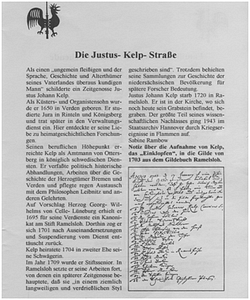 Die Justus- Kelp- Straße
Als einen „ungemein fleißigen und der
Sprache, Geschichte und Alterthümer
seines Vaterlandes überaus kundigen
Mann" schilderte ein Zeitgenosse Justus
Johann Kelp.
Als Küsters- und Organistensohn wurde
er 1650 in Verden geboren. Er studierte
Jura in Rinteln und Königsberg
und trat später in den Verwaltungsdienst
ein. Hier entdeckte er seine Liebe
zu heimatgeschichtlichen Forschungen.
Seinen beruflichen Höhepunkt erreichte
Kelp als Amtmann von Ottersberg
in königlich schwedischen Diensten.
Er verfaßte politisch historische
Abhandlungen, Arbeiten über die Geschichte
der Herzogtümer Bremen und
Verden und pflegte regen Austausch
mit dem Philosophen Leibnitz und anderen
Gelehrten.
Auf Vorschlag Herzog Georg- Wilhelms
von Celle- Lüneburg erhielt er
1695 für seine Verdienste ein Kanonikat
am Stift Ramelsloh. Dorthin zog er
1701 nach Auseinandersetzungen
und Suspendierung vom Dienst enttäuscht
zurück.
Kelp heiratete 1704 in zweiter Ehe seine
Schwägerin.
Im Jahr 1709 wurde er Stiftssenior. In
Ramelsloh setzte er seine Arbeiten fort,
von denen ein späterer Zeitgenosse behauptete,
daß sie „in einem ziemlich
langweiligen und verdrießlichen Styl
geschrieben sind". Trotzdem behielten
seine Sammlungen zur Geschichte der
niedersächsischen Bevölkerung für
spätere Forscher Bedeutung.
Justus Johann Kelp starb 1720 in Ramelsloh.
Er ist in der Kirche, wo sich
noch heute sein Grabstein befindet, beigesetzt.
Der größte Teil seiner wissenschaftlichen
Sammlungen ging 1943 im
Staatsarchiv Hannover durch Kriegsereignisse
in Flammen auf.
Notiz über die Aufnahme von Kelp,
das „Einklopfen", in die Gilde von
1703 aus dem Gildebuch Ramelsloh.